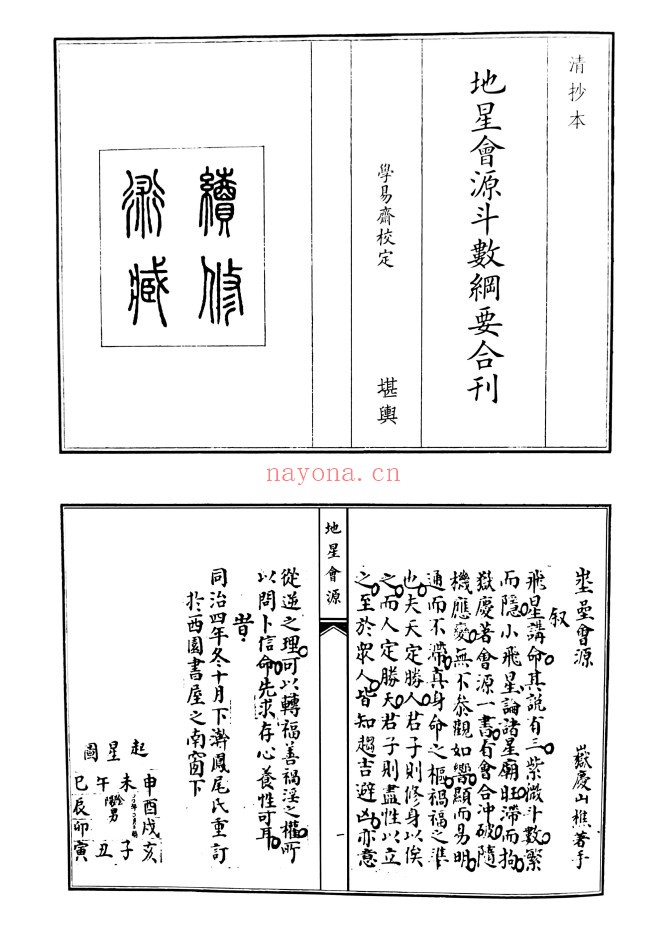 清抄本
地星會源斗數綱要合刊
學易齋校定
堪輿
續修
術藏
nayona.cn
星會源
嶽慶山樵著手
叙
飛星講命其說有三紫微斗數繁
而隱小飛星論諸星廟旺滯而拘
嶽慶著會源一書有會合冲破隨
機應變無不叅觀如響顯而易明
通而不滯真身命之樞禍福之準
也夫天定勝人君子則修身以俟
之而人定勝天君子則盡性以立
之至於眾人皆知趨吉避凶亦意
地星會源
一
從逆之理可以轉福善禍淫之權所
以問卜信命先求存心養性可耳
旹
同治四年冬十月下澣鳳尾氏重訂
於西園書屋之南窗下
起星圖
申酉戌亥
未
子
午
男
丑
巳辰卯寅